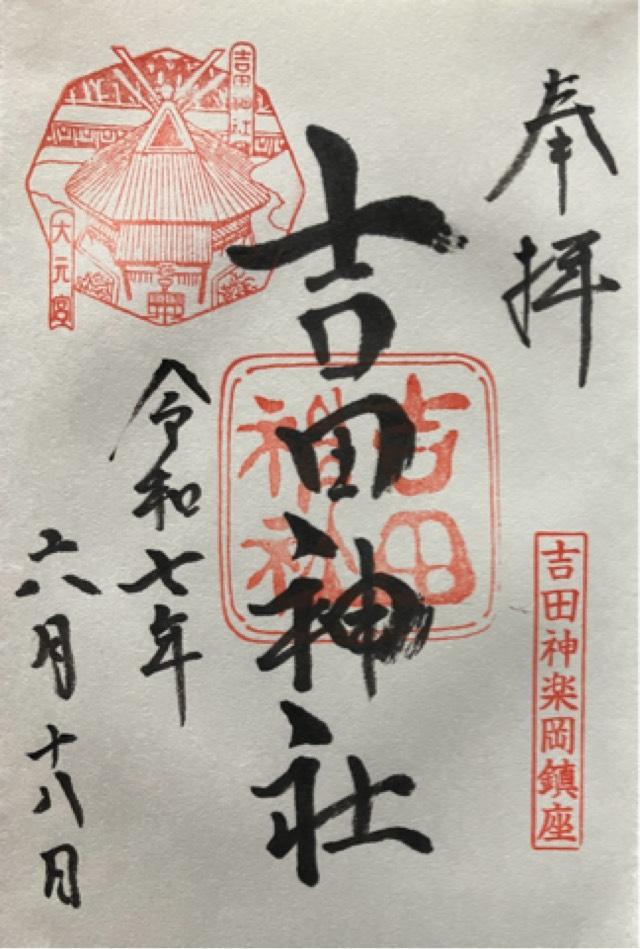 奉拝
吉田神楽岡鎮座
吉田神社
吉田
神社
吉田神社
大元宮
令和七年
六月十八日